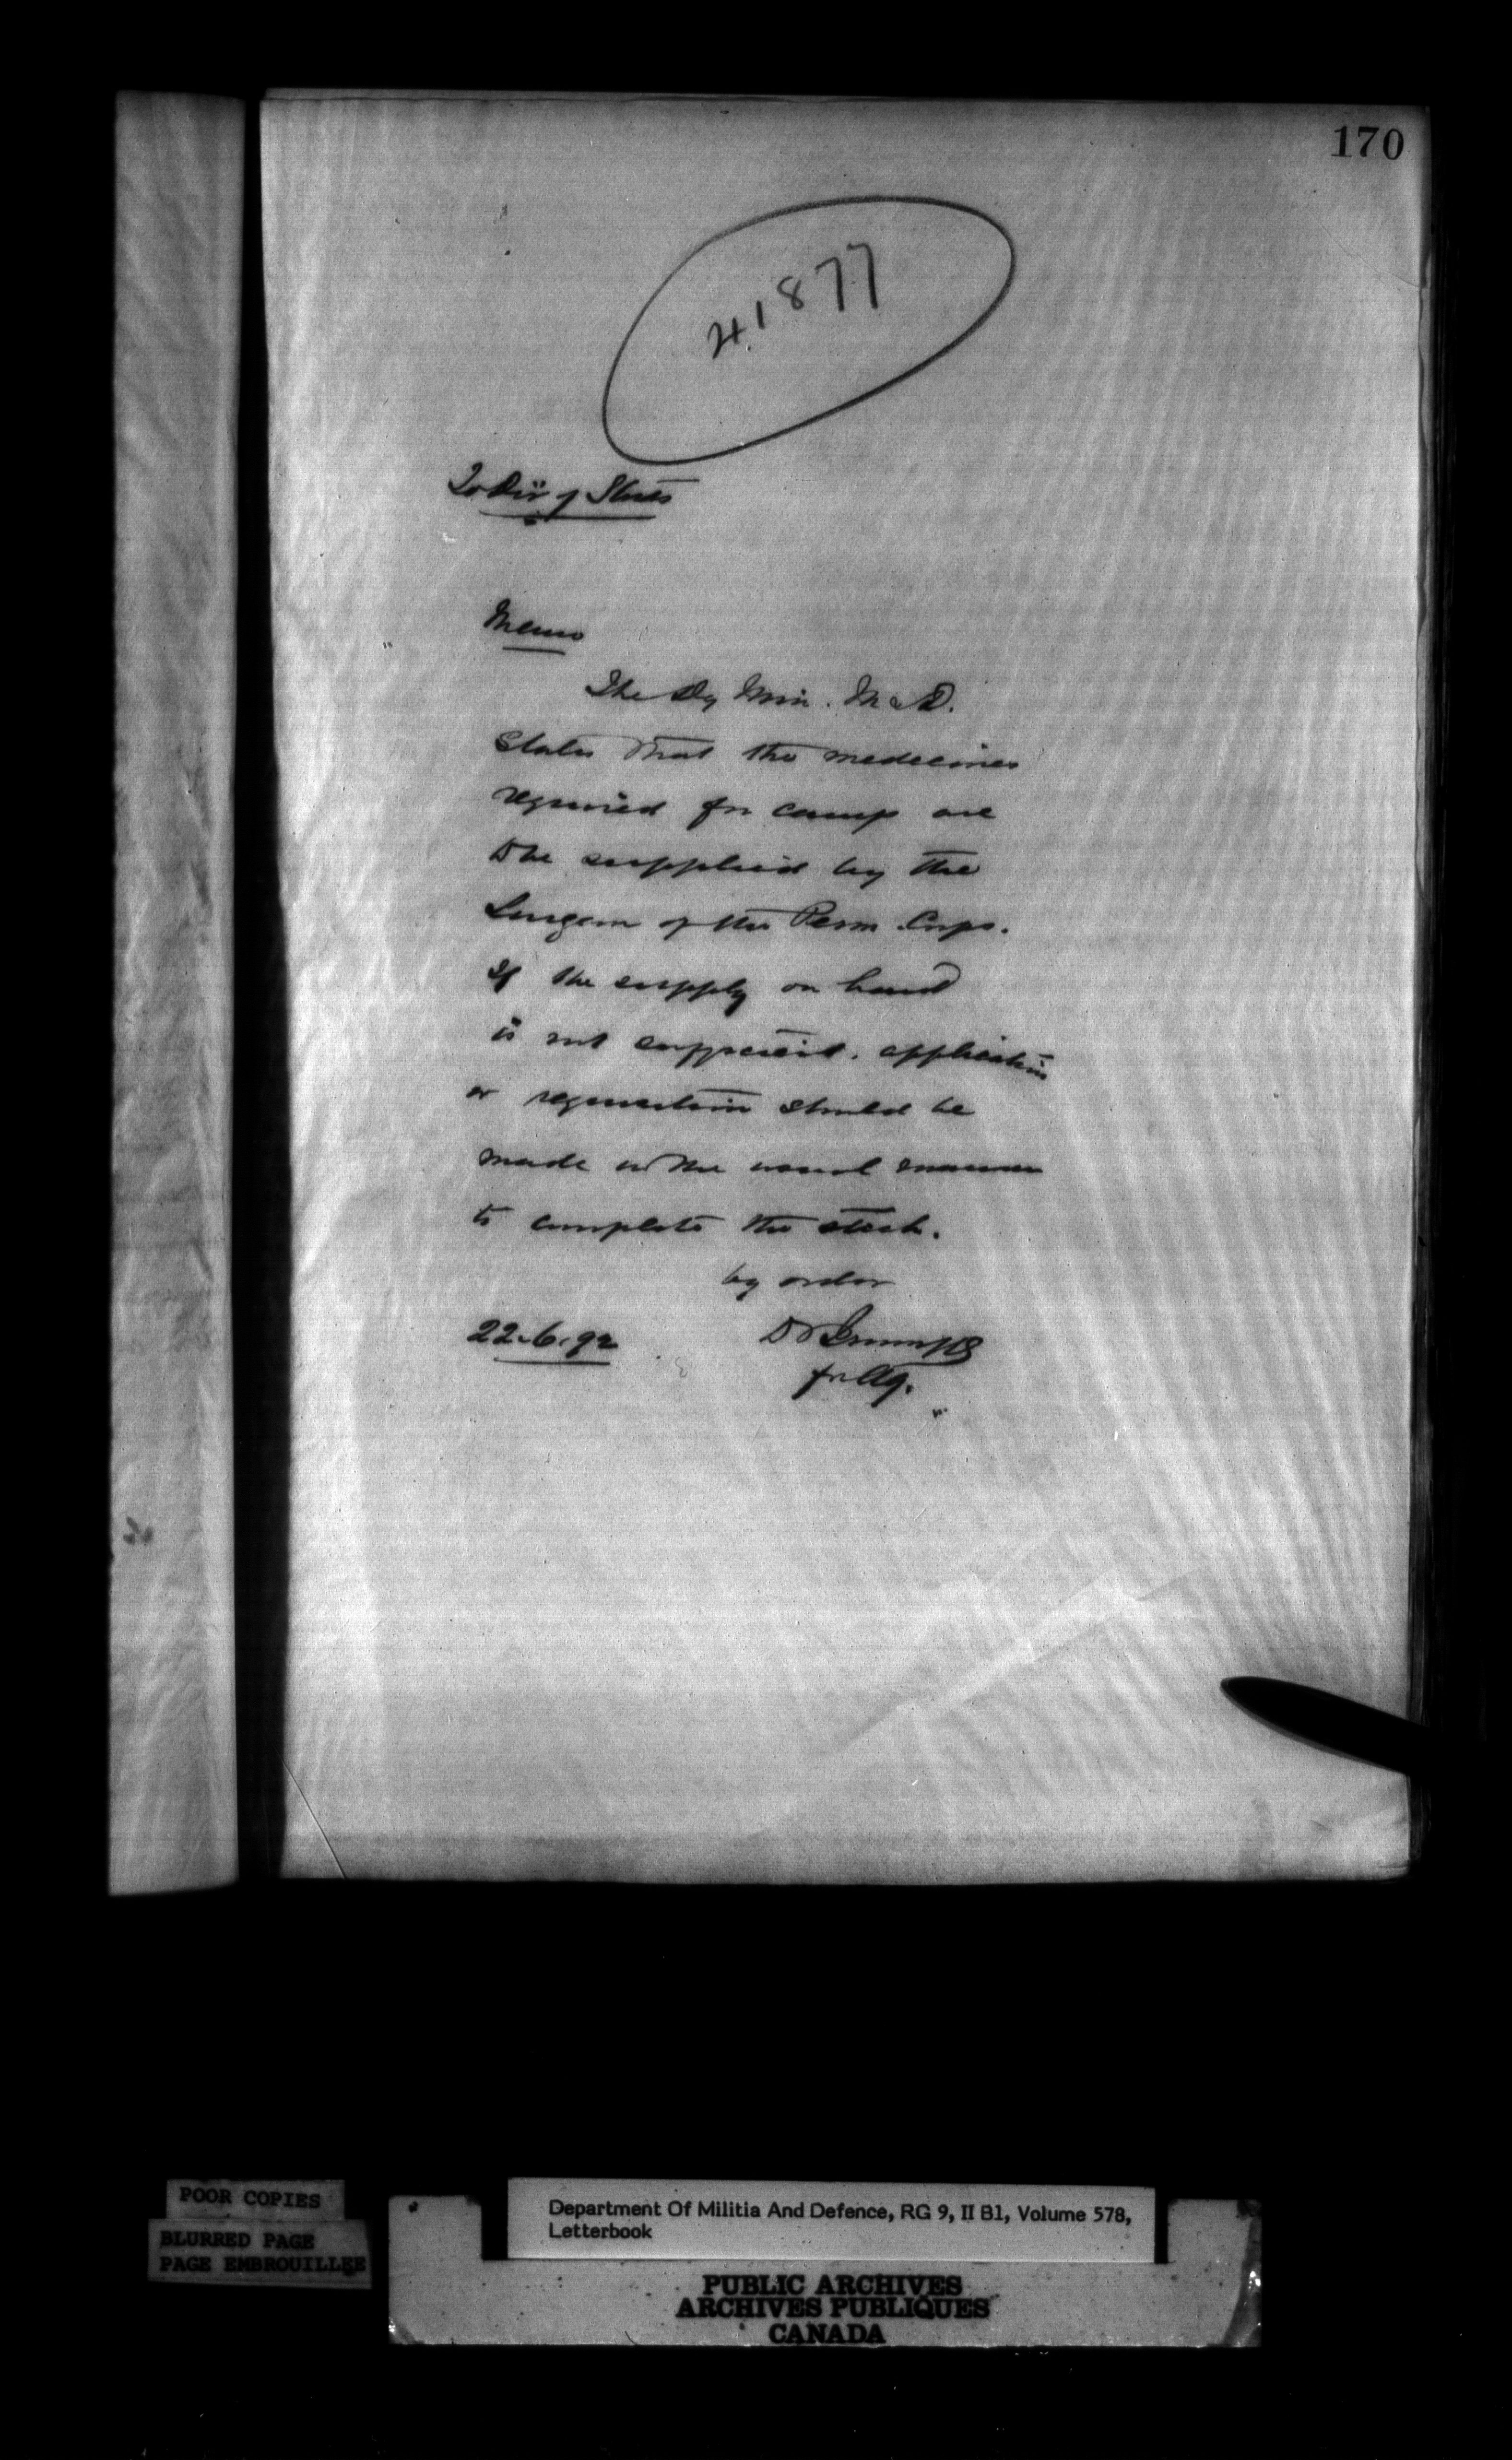 170
41877
To Dir of Stores
Memo
The Dy Min. M & D.
States that the medecines
required for camp are
to be supplied by the
Surgeon of the Perm Corps.
If the supply on hand
is not sufficient, application
or requisition should be
made in the usual manner
to complete the stock.
by order
22.6.92
for AG.
POOR COPIES
BLURRED PAGE
PAGE EMBROUILLEE
Department Of Militia And Defence, RG 9, II B1, Volume 578,
Letterbook
PUBLIC ARCHIVES
ARCHIVES PUBLIQUES
CANADA